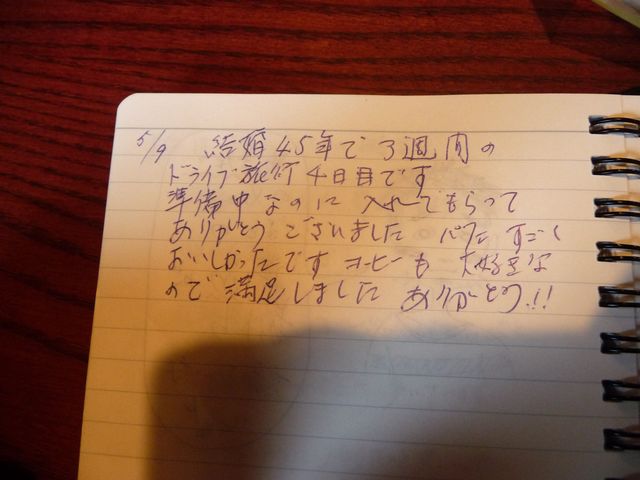 5/9 結婚45年で3週間の
ドライブ旅行4日目です
準備中なのに入れてもらって
ありがとうございました パフェすごく
おいしかったです コーヒーも大好きな
ので満足しました ありがとう!!